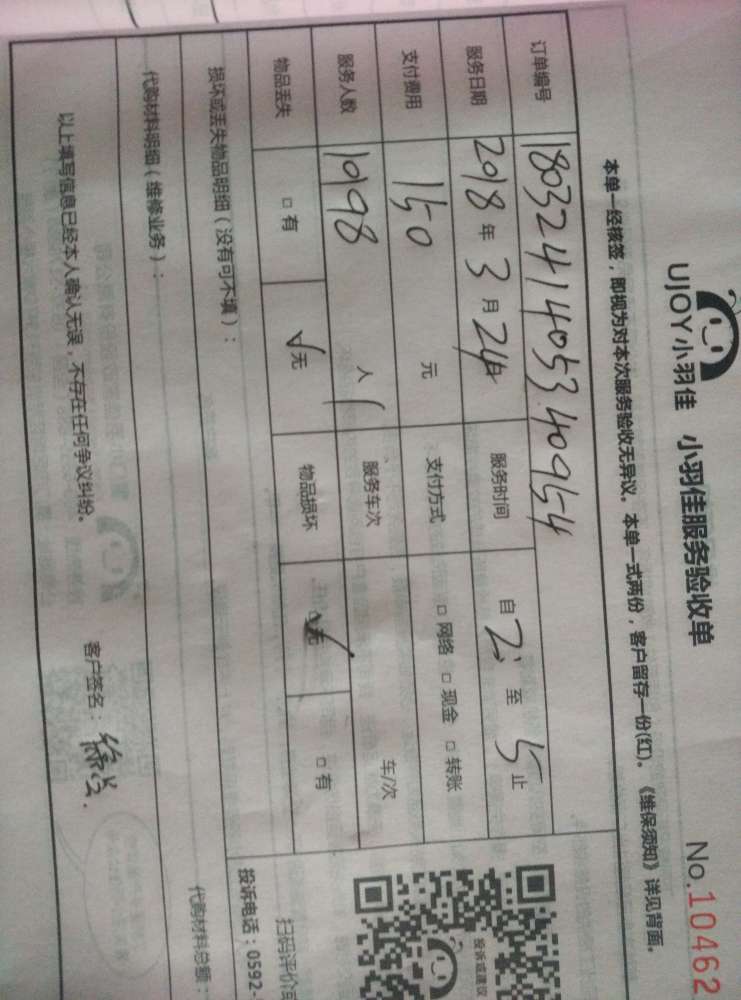 UJOY小羽佳 小羽佳服务验收单 No.10462
本单一经核签，即视为对本次服务验收无异议。本单一式两份，客户留存一份(红)。《维保须知》详见背面。
订单编号 1803241405340954
服务日期 2018年3月24日 服务时间 自2:至5止
支付费用 150 元 支付方式 □网络 □现金 □转账
服务人数 10198 人 1 服务车次 车/次
物品丢失 □有 √无 物品损坏 √无 □有
损坏或丢失物品明细（没有可不填）：
代购材料明细（维修业务）：
代购材料总额：
以上填写信息已经本人确认无误，不存在任何争议纠纷。 客户签名：
投诉或建议
扫码评价
投诉电话：0592-